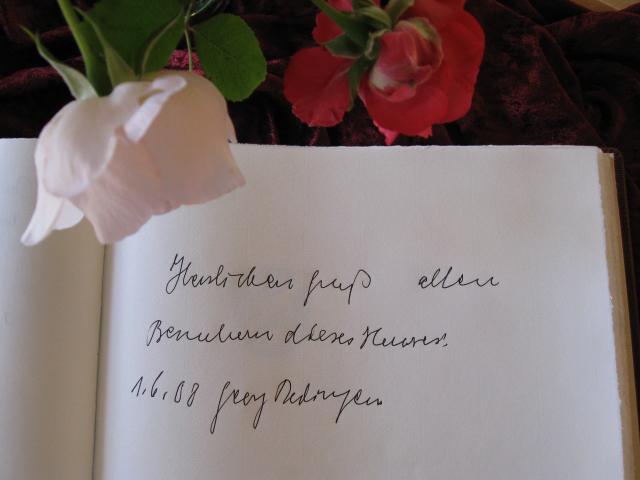 Herzlichen Gruß allen
Besuchern dieses Hauses.
1.6.08 Georg